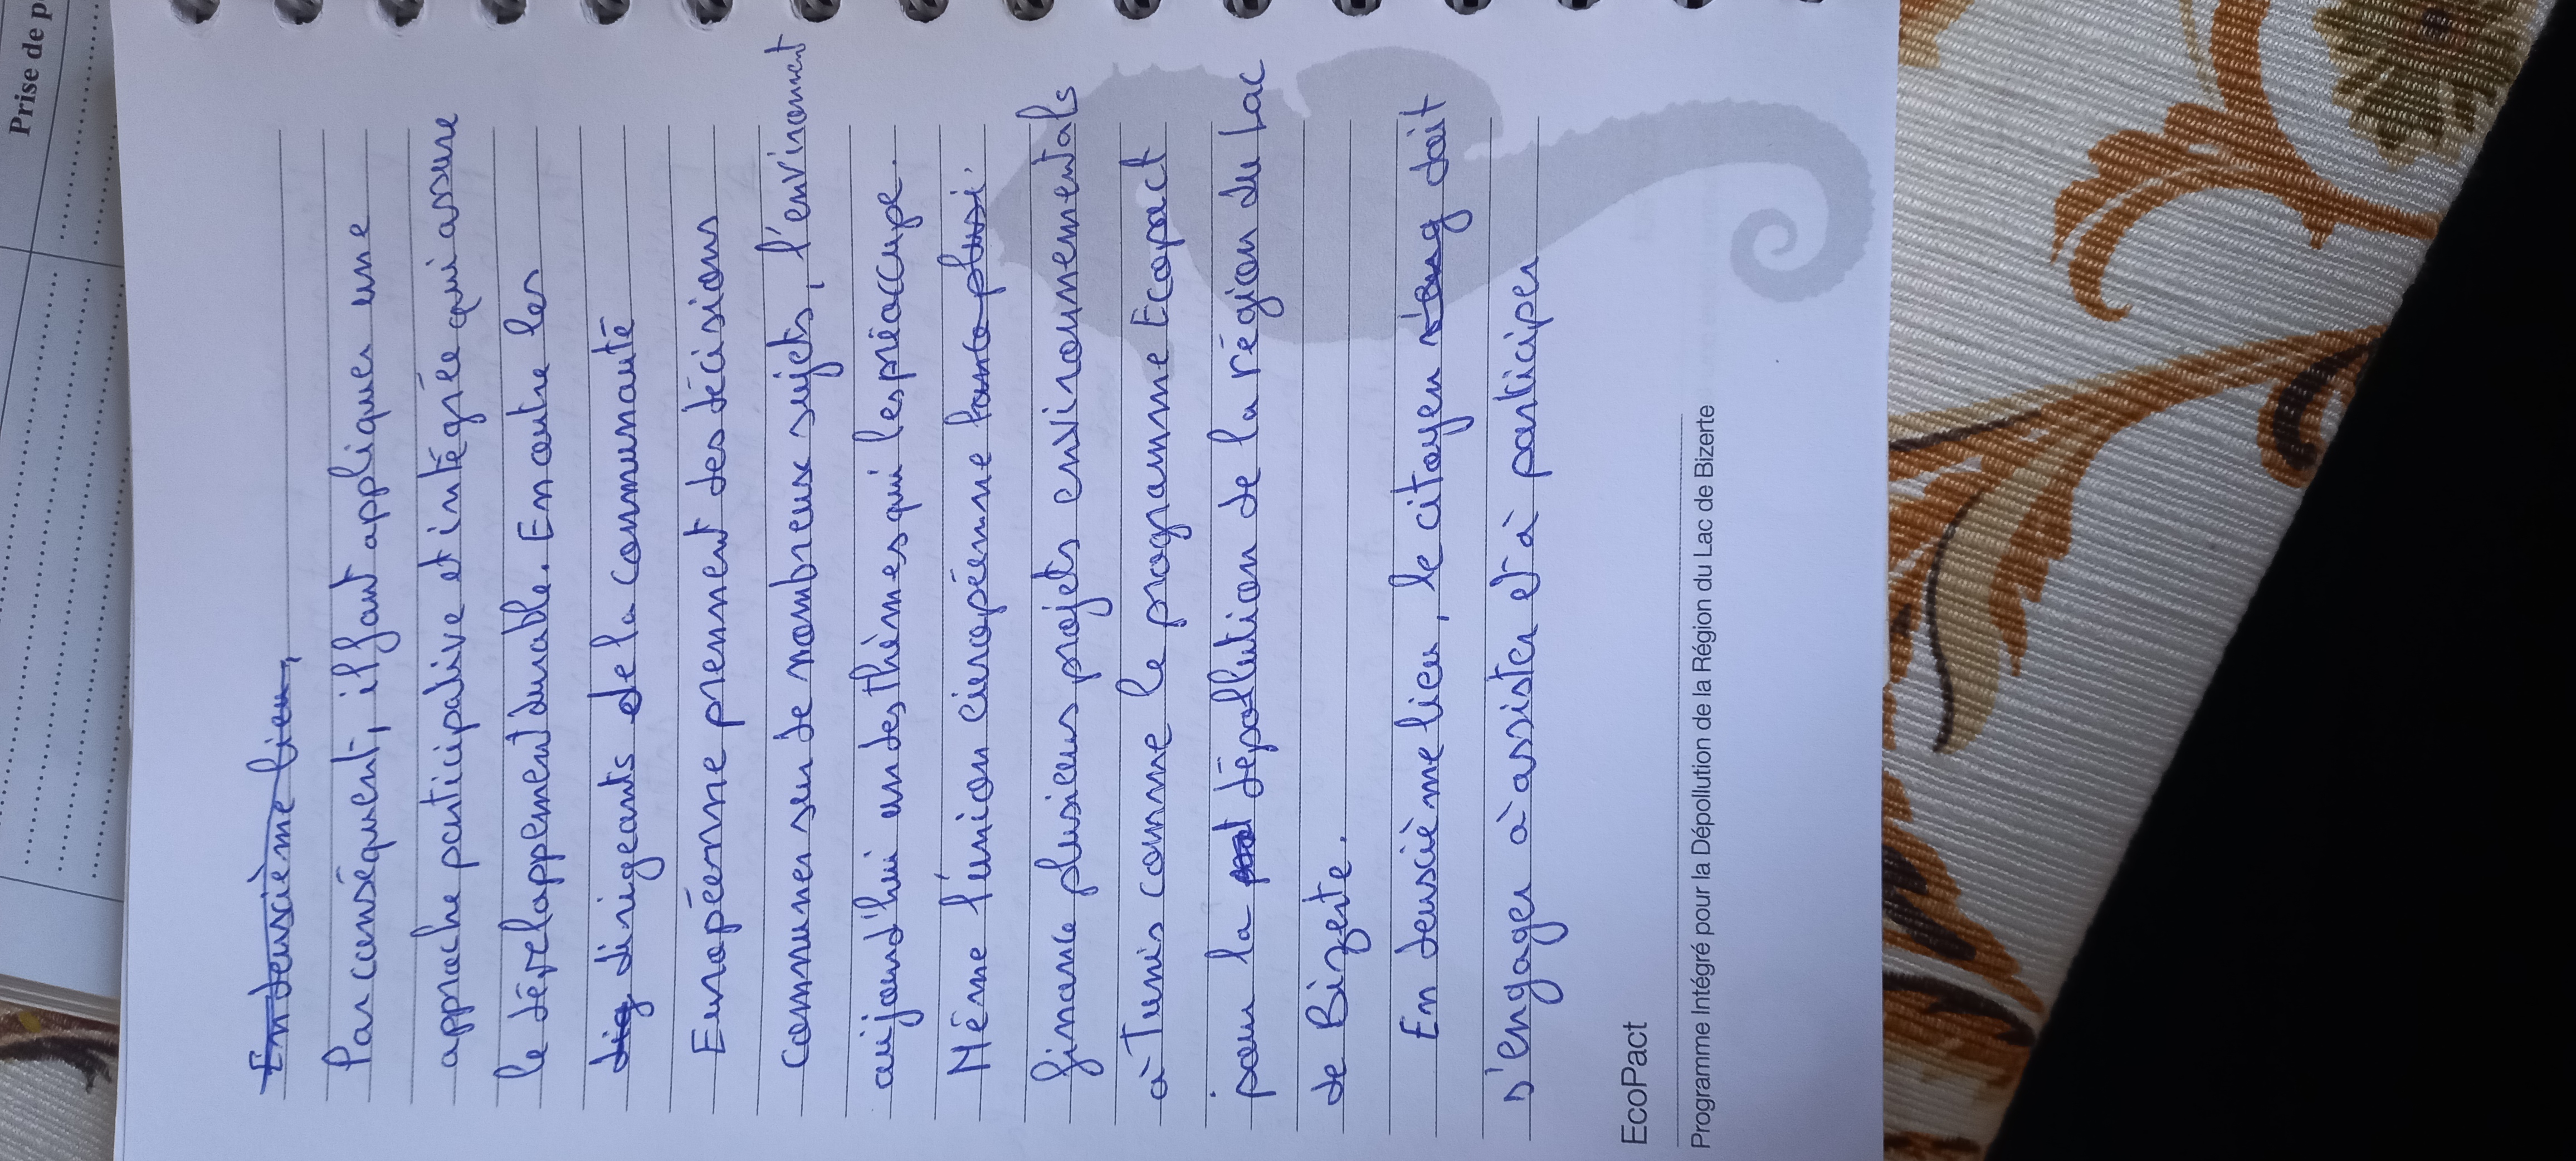 Prise de p
En deuxième lieu,
Par conséquent, il faut appliquer une
approche participative et intégrée qui assure
le développement durable. En outre les
dig dirigeants de la communauté
Européenne prennent des décisions
communes sur de nombreux sujets, l'environnent
aujourd'hui un des thèmes qui les préoccupe.
Même l'union européenne
finance plusieurs projets environnementals
à Tunis comme le programme Ecopact
pour la dépollution de la région du Lac
de Bizerte.
En deuxième lieu, le citoyen doit
s'engager à assister et à participer
EcoPact
Programme Intégré pour la Dépollution de la Région du Lac de Bizerte